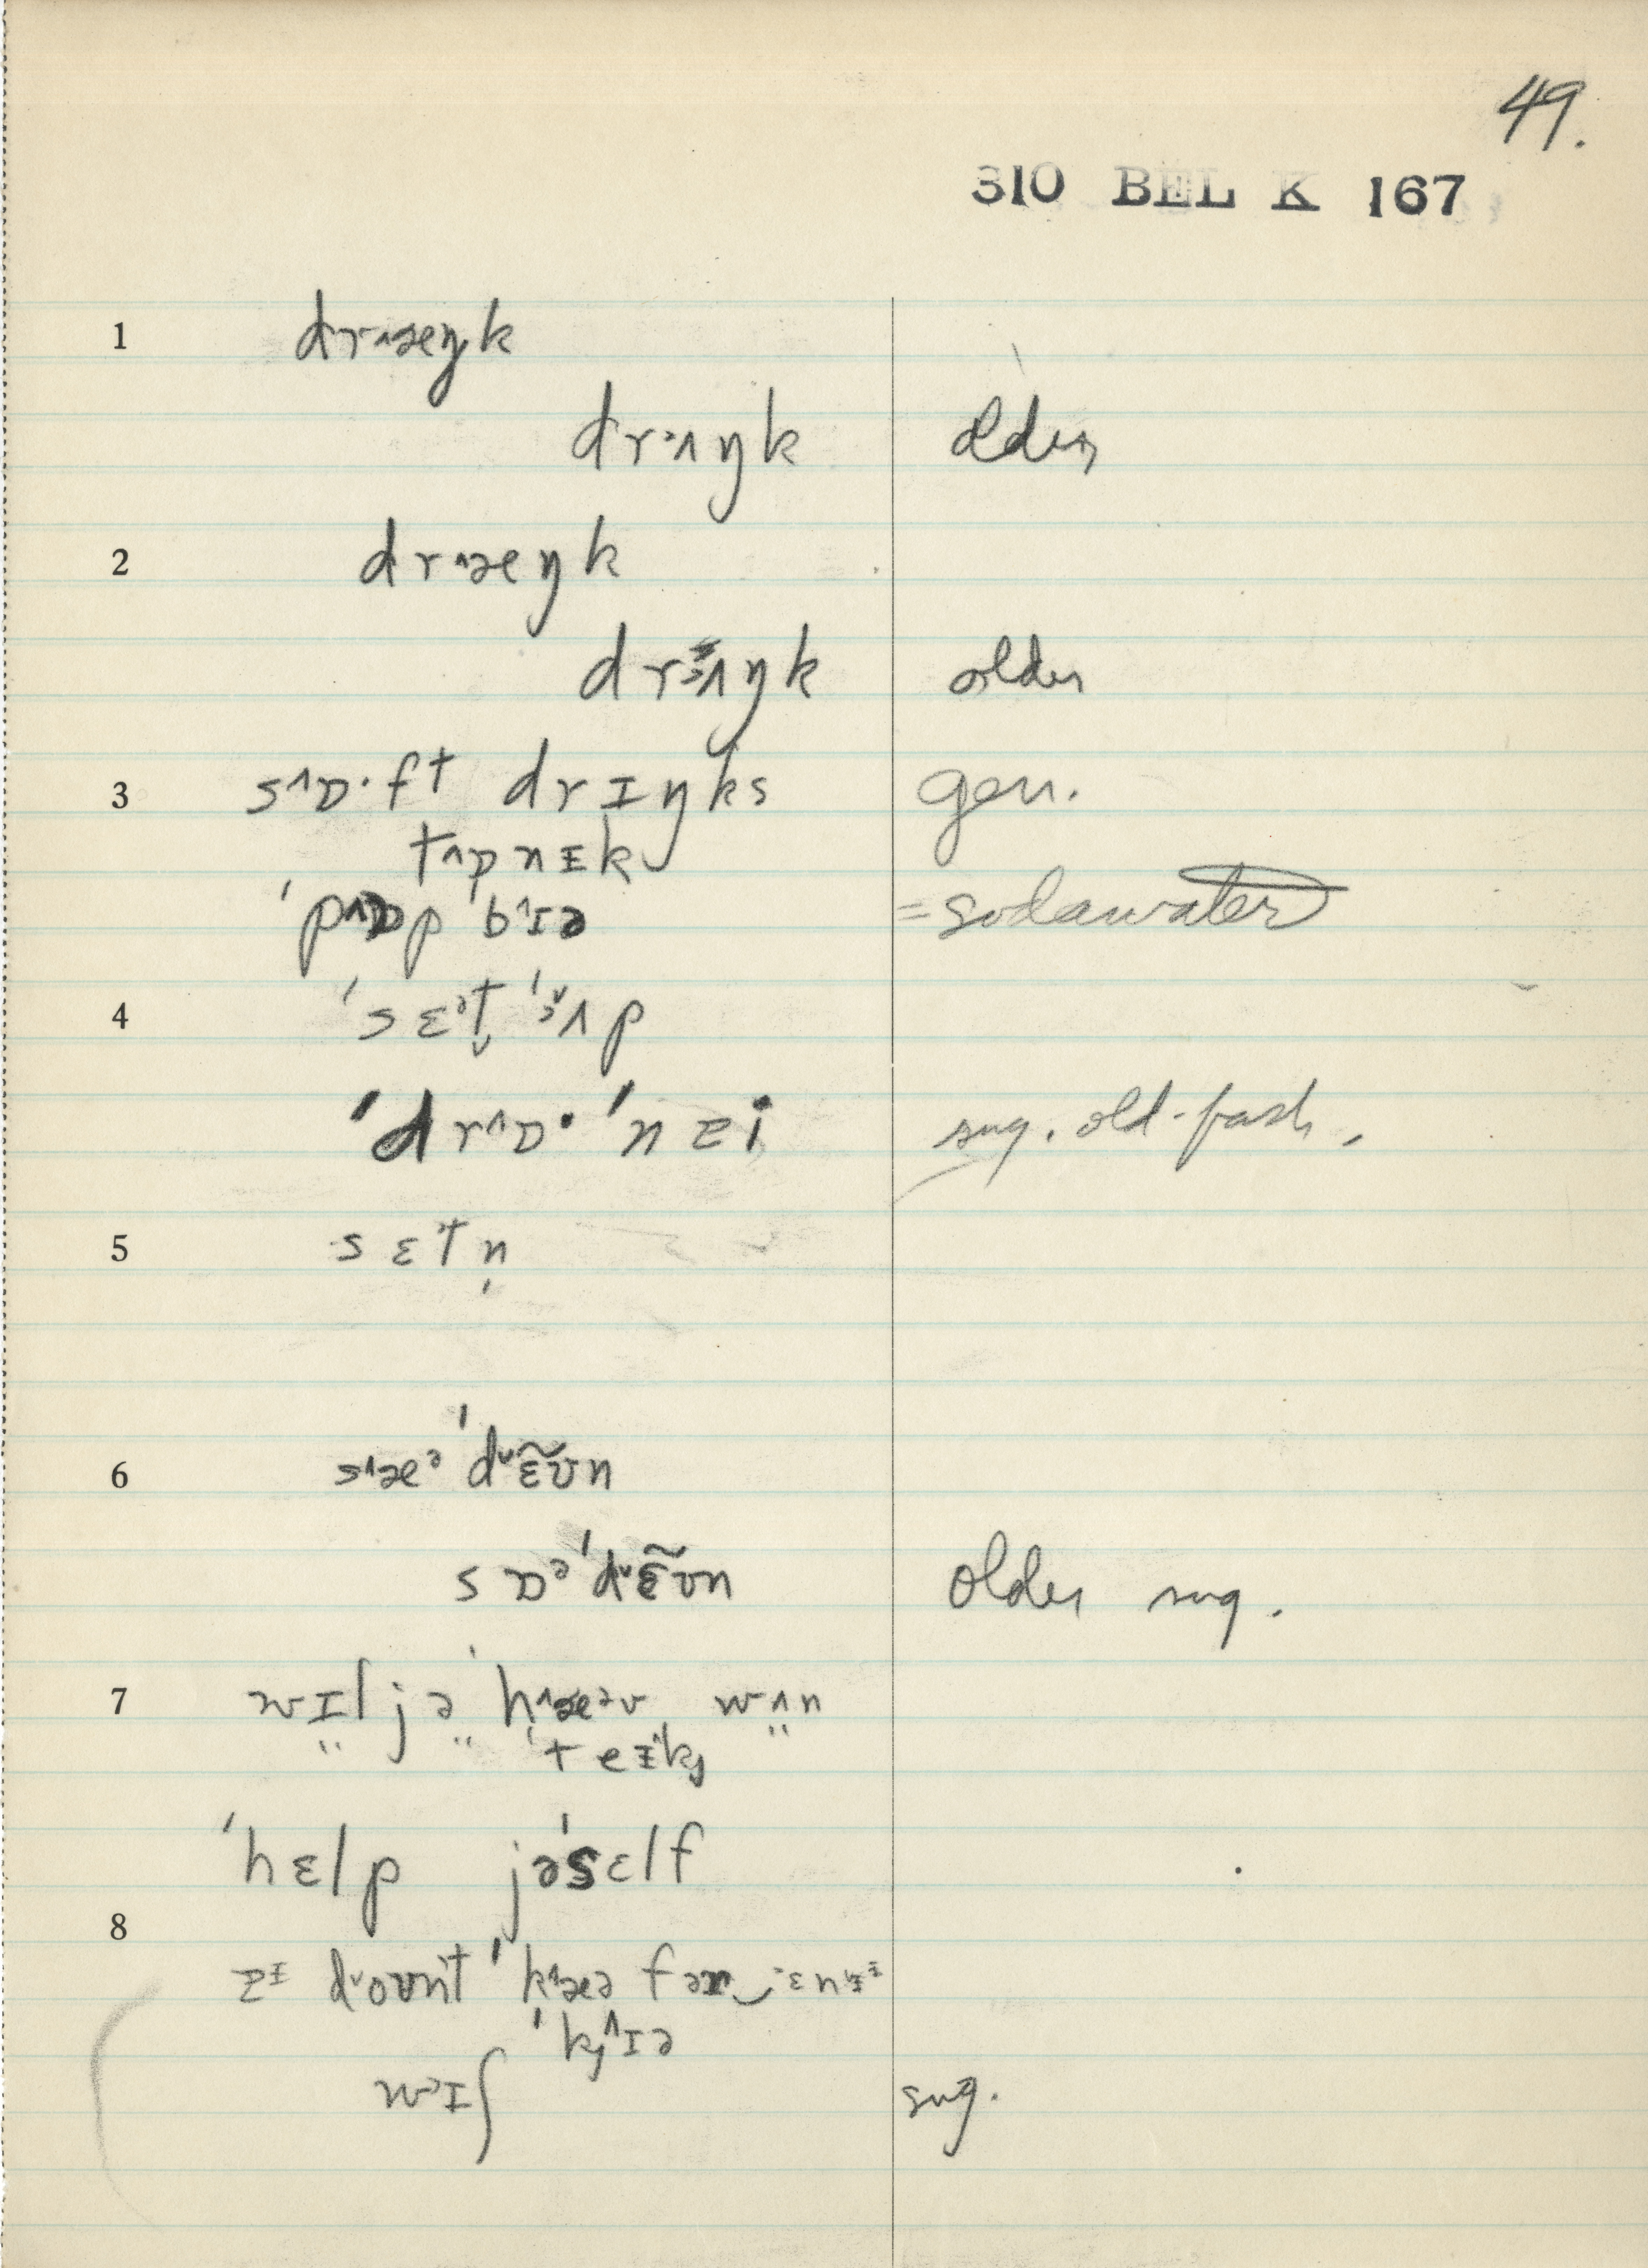 49.
310 BEL K 167
1 dr^æŋk
dr˃ʌŋk older
2 dr^æŋk
dr˃ʌŋk older
3 s^ɒ·ft drɪŋks gen.
t^ɒnɪk
'p^ɒp 'b^ɪə = sodawater
4 'sɛᵊt̬ '˃ʌp
'dr^ɒ· 'nzi sug. old-fash.
5 sɛtn̩
6 s^æᵊ 'd˅ɛ̃ʊ̃n
sɒᵊ 'd˅ɛ̃ʊn older sug.
7 wɪljə 'h^æᵊv wʌn
'teɪk
'hɛlp jə'sɛlf
8
dount 'k^æə fər ɛnɪ
'k^ɪə
wɪʃ sug.